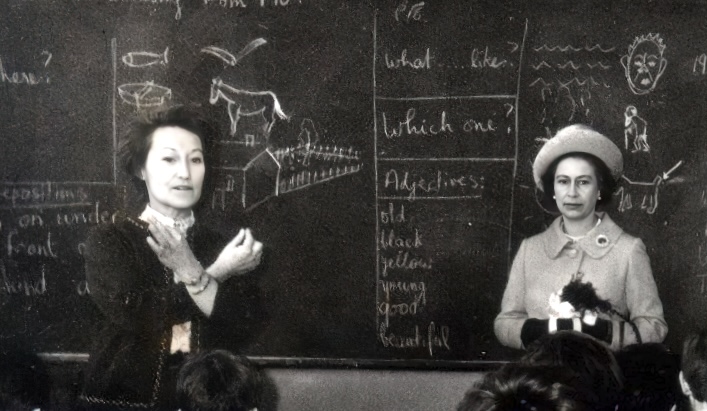 from
P.B.
here?
What....like?
19
Which one?
epositions
on under
front o
hind a
Adjectives:
old
black
yellow
young
good
beautiful